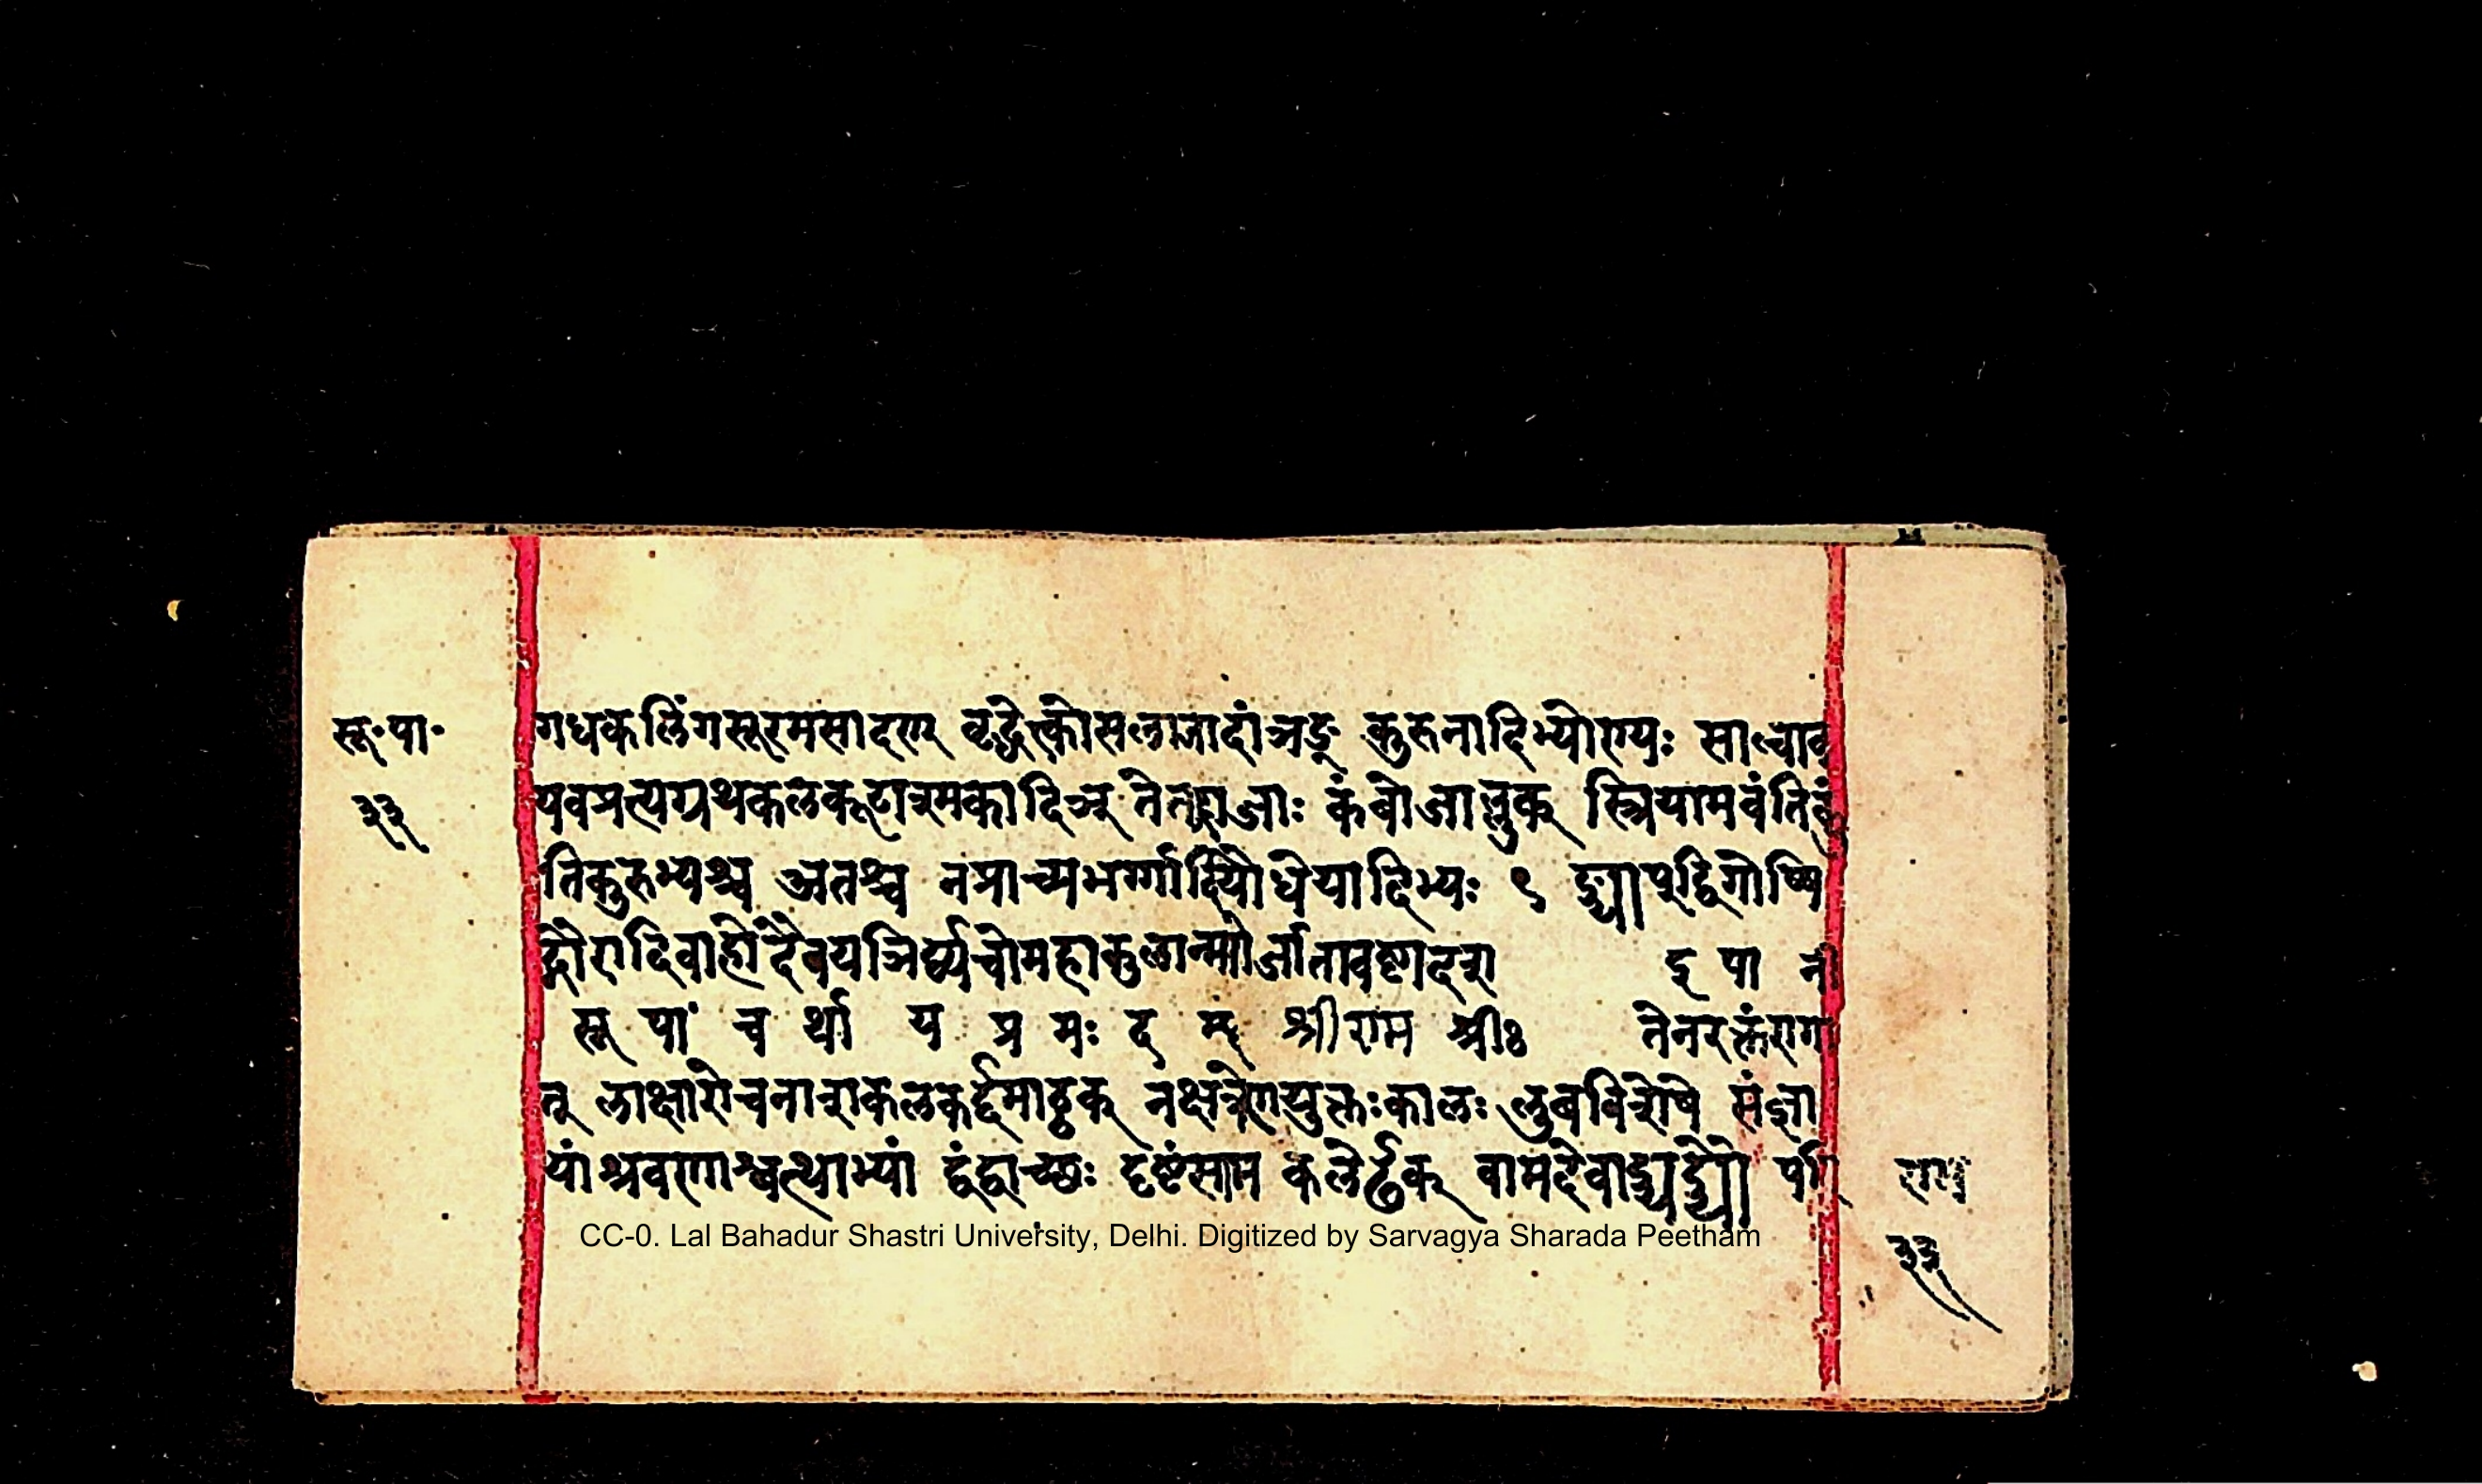 सू॰पा॰
३३
गधकलिंगसूरमसादण् वृद्धेत्कोसलाजादांञ्यङ् कुरुनादिभ्योण्यः साल्वाव
यवप्रत्यग्रथकलकूटाश्मकादिञ् तेतद्राजाः कंबोजाल्लुक् स्त्रियामवंतिकुं
तिकुरुभ्यश्च अतश्च नप्राच्यभर्ग्गादियौधेयादिभ्यः ९ ङ्याप्द्विगोष्पि
द्गौरादिवाहो दैवयज्ञिर्द्व्यचोमहाकुलान्मनोर्जातावष्टादश
सू पा च र्था य प्र मः द म् श्रीराम श्रीः तेनरक्तंरागा
त् लाक्षारोचनाशकलकर्द्दमाठ्ठक् नक्षत्रेणयुक्तःकालः लुबविशेषे संज्ञा
यांश्रवणाश्वत्थाभ्यां द्वंद्वाच्छः दृष्टंसाम कलेर्ढक् वामदेवाड्ड्यड्ड्यौ परि
राम
३३
CC-0. Lal Bahadur Shastri University, Delhi. Digitized by Sarvagya Sharada Peetham